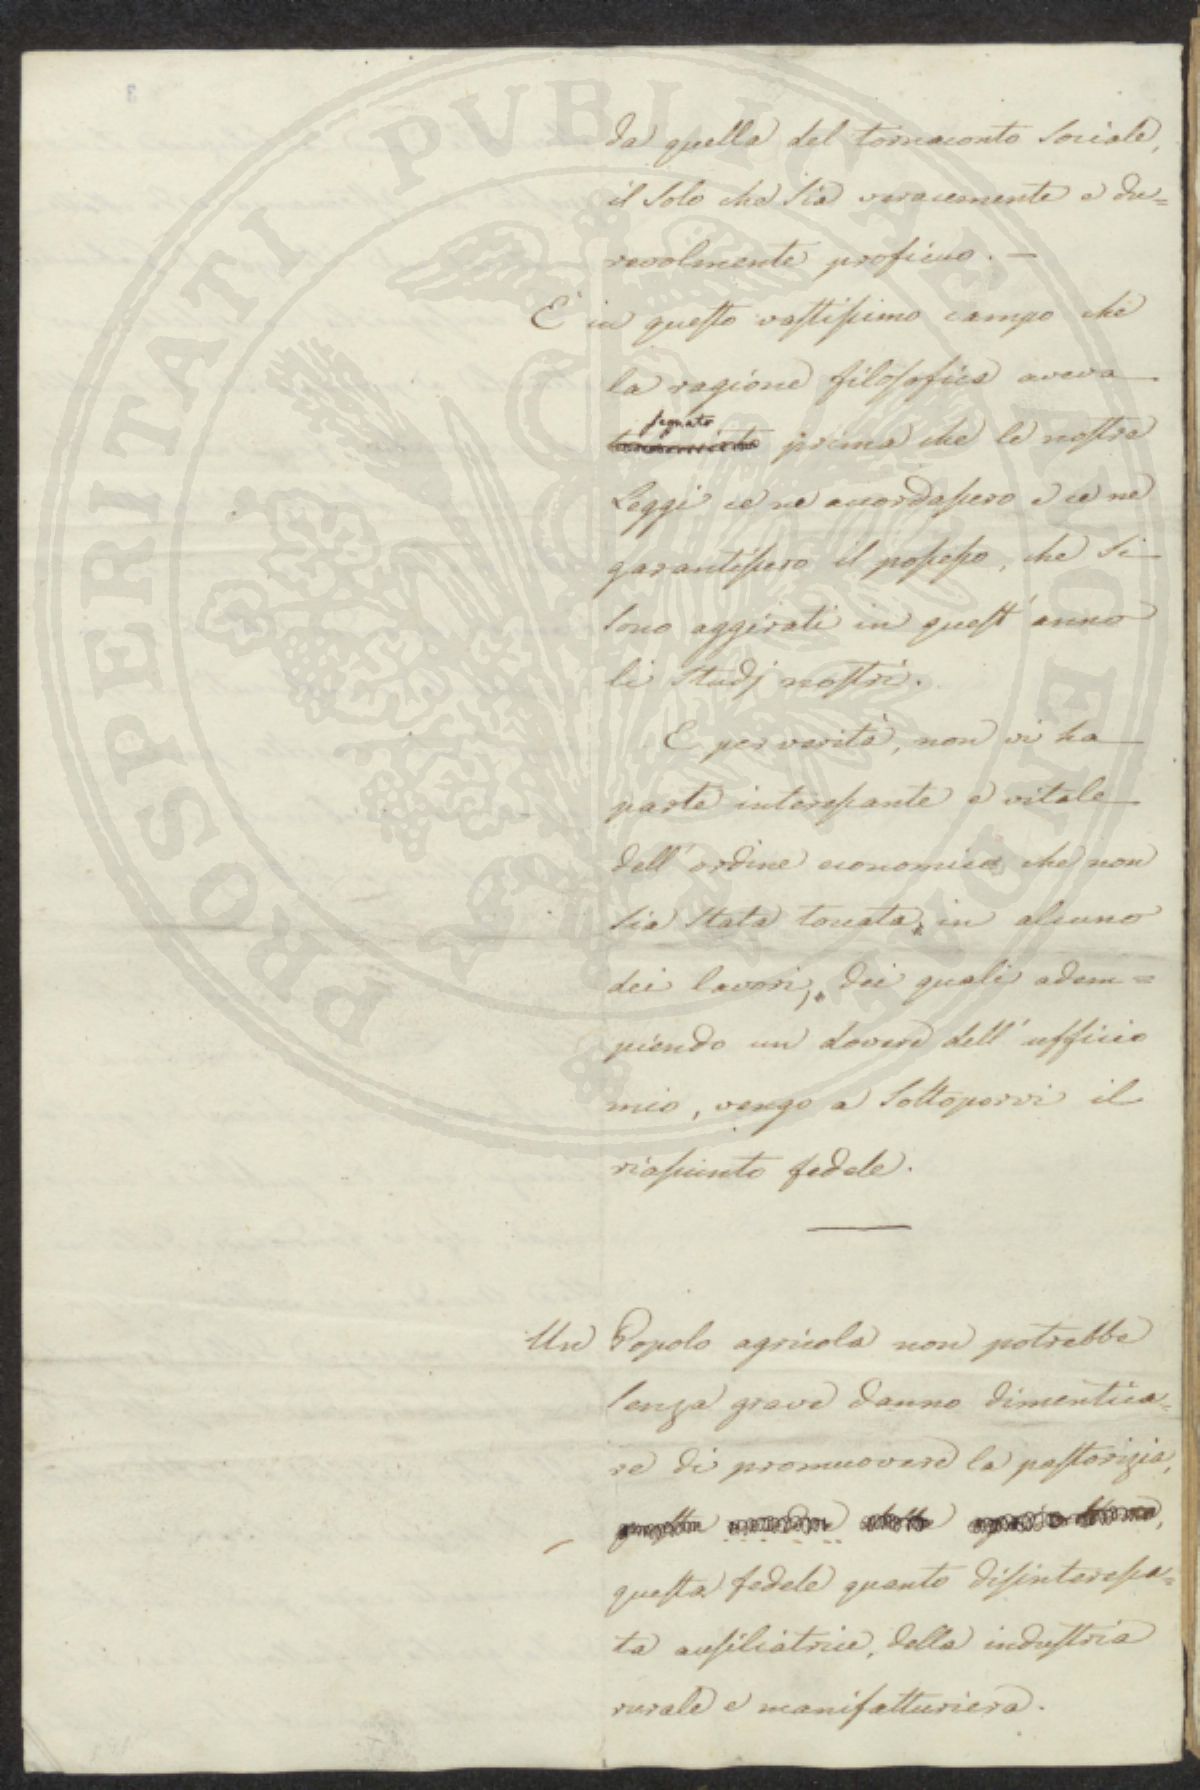 da quella del tornaconto sociale,
il solo che sia veracemente e du=
revolmente proficuo. —
E in questo vastissimo campo che
la ragione filosofica aveva
segnato
prima che le nostre
Leggi ce ne accordassero e ce ne
garantissero il possesso, che si
sono aggirati in quest'anno
li studj nostri.
E per verità, non vi ha
parte interessante e vitale
dell'ordine economico che non
sia stata toccata, in alcuno
dei lavori, dei quali adem=
piendo un dovere dell'ufficio
mio, vengo a sottoporvi il
riassunto fedele.
Un Popolo agricola non potrebbe
senza grave danno dimentica=
re di promuovere la pastorizia,
questa fedele quanto disinteressa=
ta ausiliatrice, della industria
rurale e manifatturiera.
PROSPERITATI PVBLICAE AVGENDAE